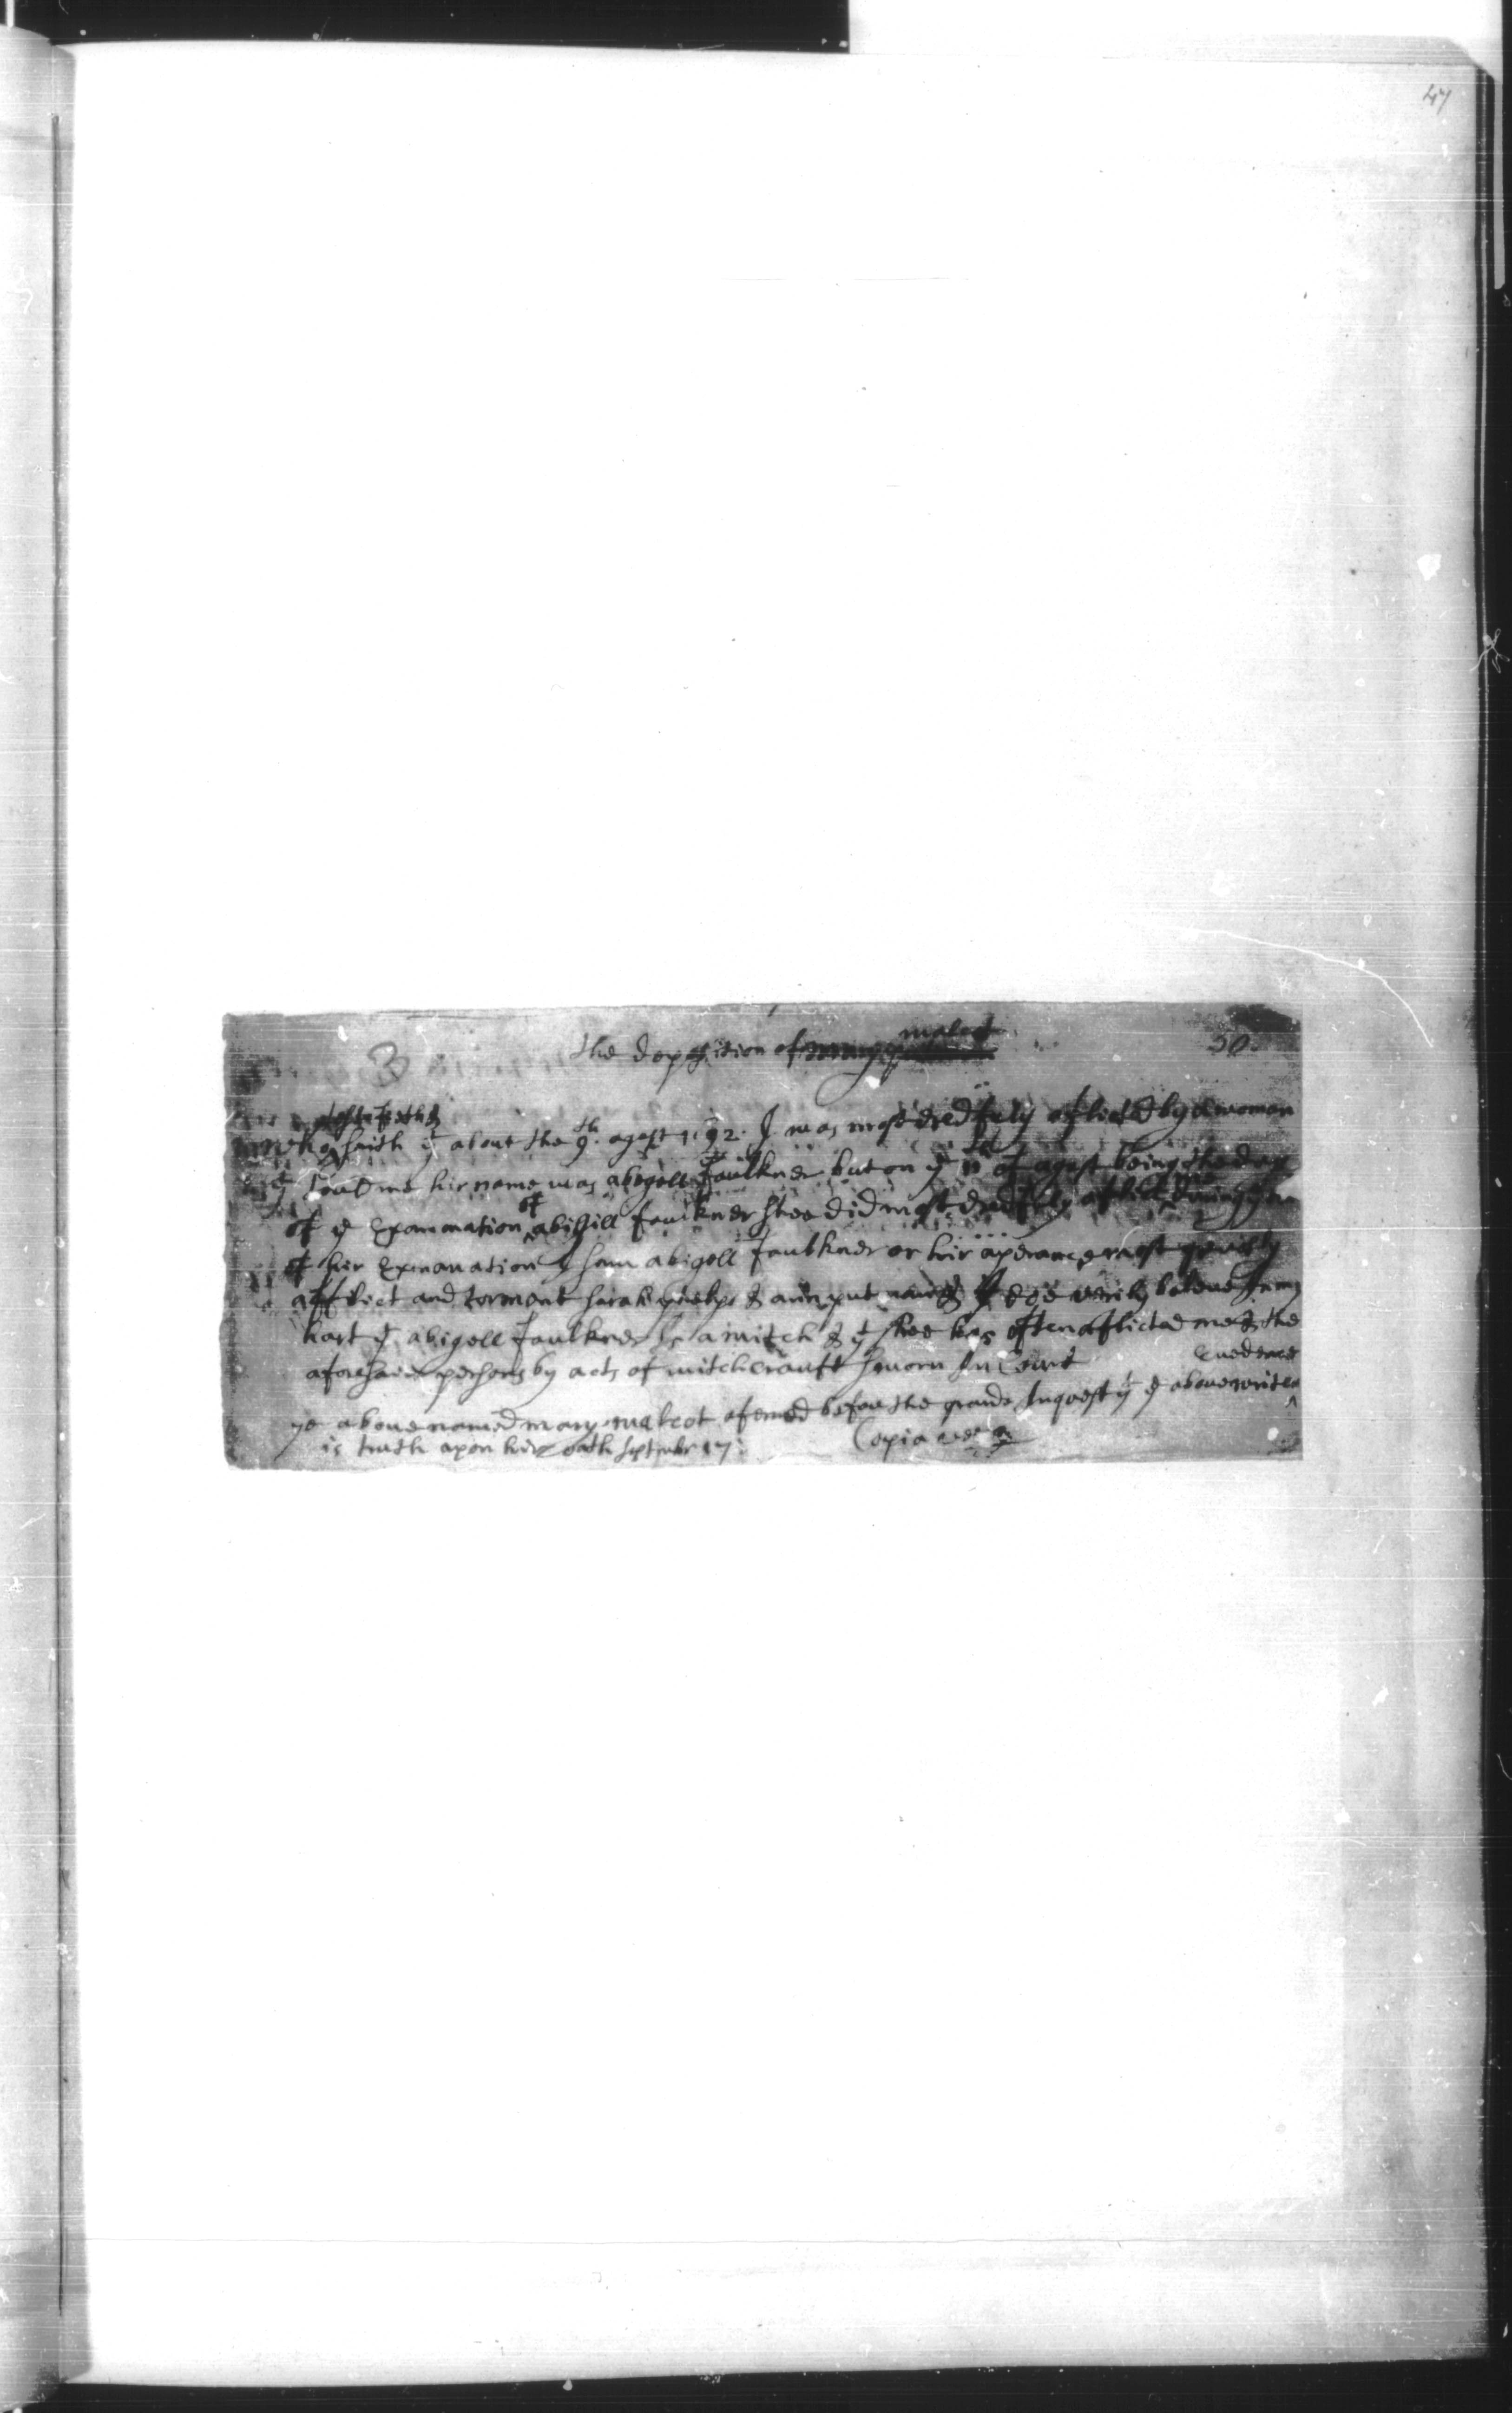 47
the deposition of mary walcot
30
3
who testifieth & saith yt about the 9th agust 1692. I was most dredfuly aflicted by a woman
yt tould me hir name was abigell Faulkner but on ye 11 of agust being the day
of ye Examination of abigill Faulkner shee did most dredfuly aflict during the
of hir Examanation I saw abigell Faulkner or hir aperance most
afflict and torment sarah phelps & ann putnam & I doe verily beleue In my
hart yt abigell Faulkner Is a witch & yt shee has often aflicted me & the
aforesaid persons by acts of witchcrauft sworn In Court
evedence
ye aboue named mary walcot afermd before the grand Inquest yt ye aboue written
is truth apon hir oath September 17
Copia vera